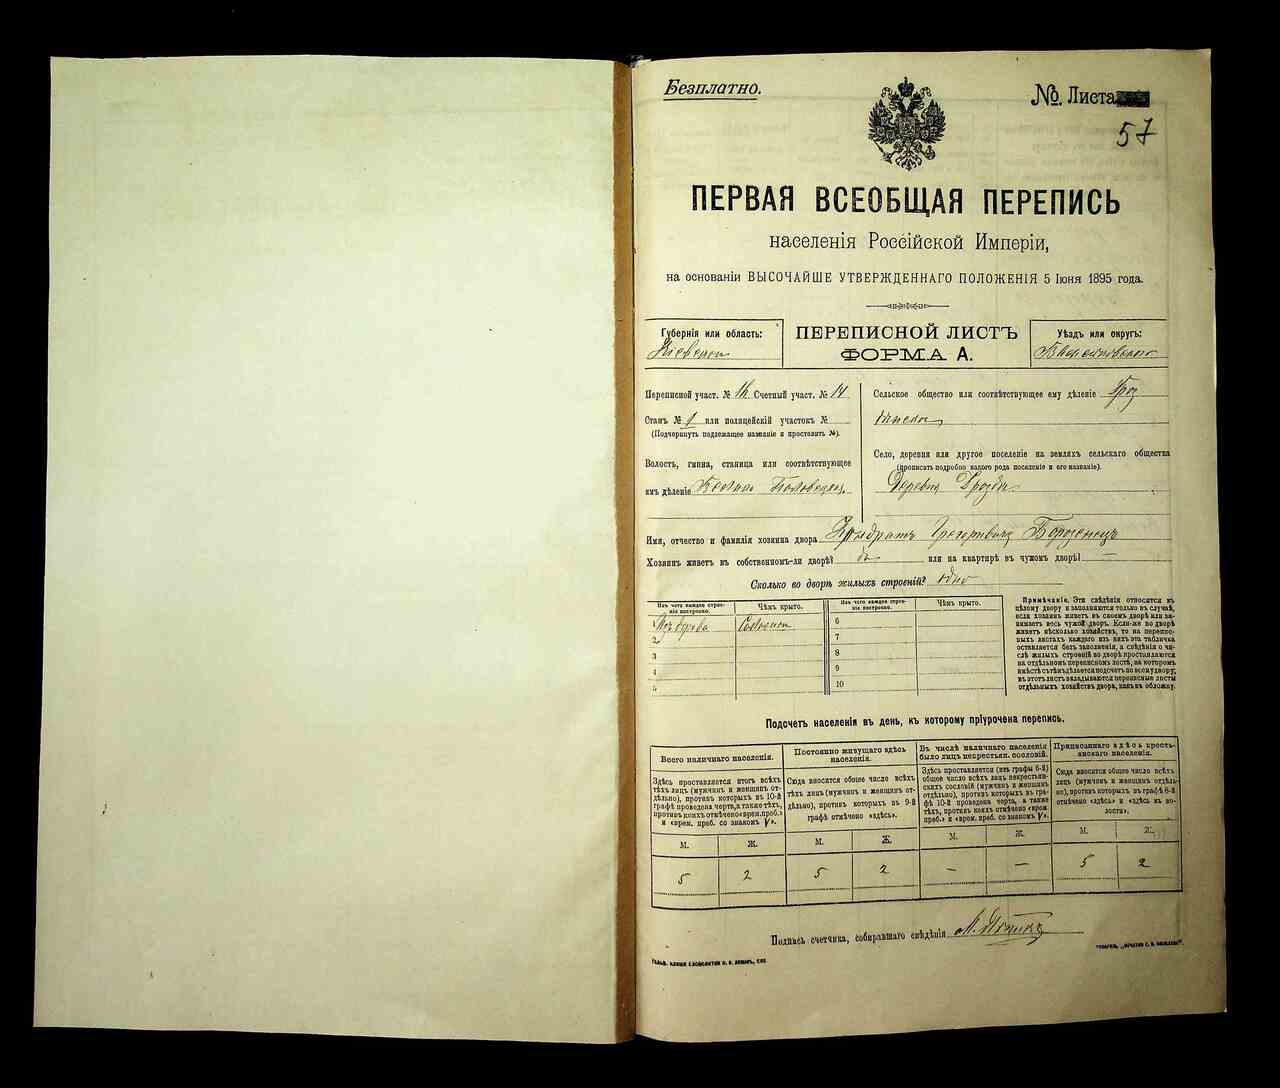 Безплатно.
№. Листа
57
ПЕРВАЯ ВСЕОБЩАЯ ПЕРЕПИСЬ
населенія Россійской Имперіи,
на основаніи ВЫСОЧАЙШЕ УТВЕРЖДЕННАГО ПОЛОЖЕНІЯ 5 Іюня 1895 года.
Губернія или область:
ПЕРЕПИСНОЙ ЛИСТЪ
ФОРМА А.
Уѣздъ или округъ:
Переписной участ. № Счетный участ. № 14
Станъ № 1 или полицейскій участокъ №
(Подчеркнуть подлежащее названіе и проставить №).
Волость, гмина, станица или соотвѣтствующее
имъ дѣленіе
Сельское общество или соотвѣтствующее ему дѣленіе
Село, деревня или другое поселеніе на земляхъ сельскаго общества
(прописать подробно какого рода поселеніе и его названіе).
Деревня Дрозды
Имя, отчество и фамилія хозяина двора
Хозяинъ живетъ въ собственномъ-ли дворѣ? да или на квартирѣ въ чужомъ дворѣ? —
Сколько во дворѣ жилыхъ строеній? одно
Изъ чего каждое строеніе построено.
Чѣмъ крыто.
Изъ чего каждое строеніе построено.
Чѣмъ крыто.
1 Изъ дерева Соломой
2
3
4
5
6
7
8
9
10
Примѣчаніе. Эти свѣдѣнія относятся къ
цѣлому двору и заполняются только въ случаѣ,
если хозяинъ живетъ въ своемъ дворѣ или занимаетъ
весь чужой дворъ. Если-же во дворѣ
живетъ нѣсколько хозяйствъ, то на переписныхъ
листахъ каждаго изъ нихъ эта табличка
оставляется безъ заполненія, а свѣдѣнія о числѣ
жилыхъ строеній во дворѣ проставляются
на отдѣльномъ переписномъ листѣ, на которомъ
вмѣстѣ съ тѣмъ дѣлается подсчетъ по всему двору;
въ этотъ листъ вкладываются переписные листы
отдѣльныхъ хозяйствъ двора, какъ въ обложку.
Подсчетъ населенія въ день, къ которому пріурочена перепись.
Всего наличнаго населенія.
Здѣсь проставляется итогъ всѣхъ
тѣхъ лицъ (мужчинъ и женщинъ отдѣльно),
противъ которыхъ въ 10-й
графѣ проведена черта, а также тѣхъ,
противъ коихъ отмѣчено «врем. преб.»
и «врем. преб. со знакомъ V».
Постоянно живущаго здѣсь
населенія.
Сюда вносится общее число всѣхъ
тѣхъ лицъ (мужчинъ и женщинъ отдѣльно),
противъ которыхъ въ 9-й
графѣ отмѣчено «здѣсь».
Въ числѣ наличнаго населенія
было лицъ некрестьян. сословій.
Здѣсь проставляется (изъ графы 6-й)
общее число всѣхъ лицъ некрестьянскихъ
сословій (мужчинъ и женщинъ
отдѣльно), противъ которыхъ въ графѣ
10-й проведена черта, а также
тѣхъ, противъ коихъ отмѣчено «врем.
преб.» и «врем. преб. со знакомъ V».
Приписаннаго здѣсь крестьянскаго
населенія.
Сюда вносится общее число всѣхъ
лицъ (мужчинъ и женщинъ отдѣльно),
противъ которыхъ въ графѣ 8-й
отмѣчено «здѣсь» и «здѣсь въ волости».
М. Ж. М. Ж. М. Ж. М. Ж.
5 2 5 2 — — 5 2
Подпись счетчика, собиравшаго свѣдѣнія